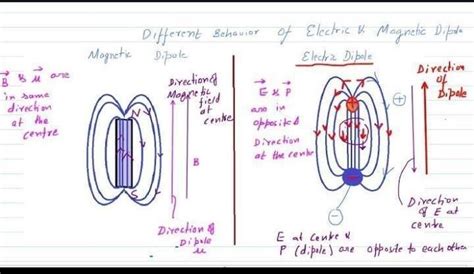 Different Behavior of Electric & Magnetic Dipole
Magnetic Dipole
B & μ are
in same
direction
at the
centre
Direction of
Magnetic
field
at
centre
N
S
B
Direction of
Dipole
μ
Electric Dipole
E & P
are in
opposite
Direction
at the centre
+
-
Direction
of
Dipole
Direction
of E at
centre
E at centre &
P (dipole) are opposite to each other